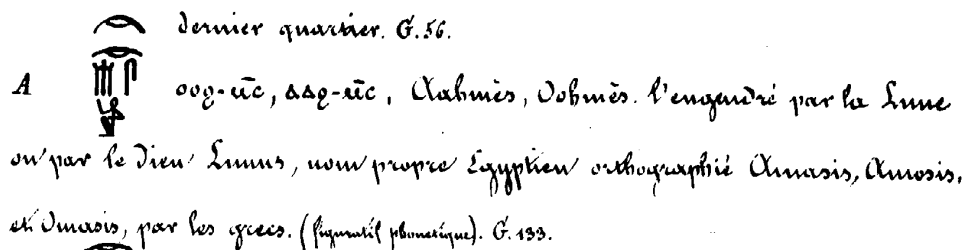 dernier quartier. G. 56.
A ⲟⲟϩ-ⲙ̄ⲥ, ⲁⲁϩ-ⲙ̄ⲥ, Aahmès, Oohmès. l'engendré par la Lune
ou par le Dieu Lunus, nom propre Egyptien orthographié Amasis, Amosis,
et Omasis, par les grecs. (figuratif phonetique). G. 133.